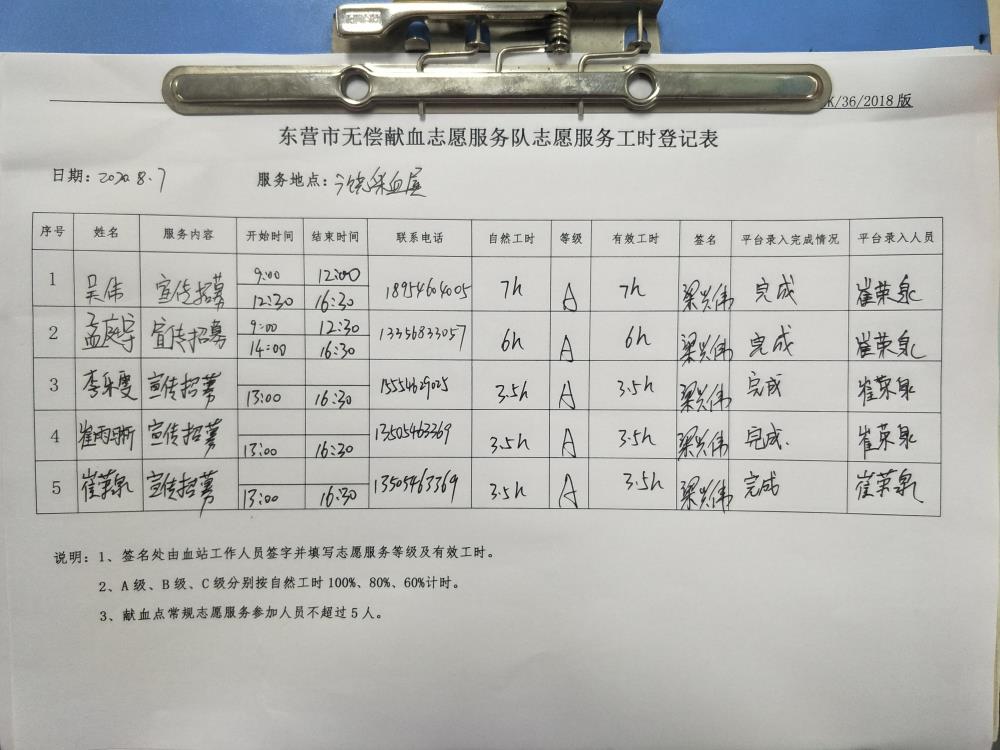 K/36/2018 版
东营市无偿献血志愿服务队志愿服务工时登记表
日期：2020.8.7 服务地点：献血屋
序号 姓名 服务内容 开始时间 结束时间 联系电话 自然工时 等级 有效工时 签名 平台录入完成情况 平台录入人员
1 吴伟 宣传招募 9:00 12:00 18954604005 7h A 7h 梁兴伟 完成 崔荣泉
12:30 16:30
2 孟庭宇 宣传招募 9:00 12:30 13356833057 6h A 6h 梁兴伟 完成 崔荣泉
14:00 16:30
3 李乐雯 宣传招募 13:00 16:30 3.5h A 3.5h 梁兴伟 完成 崔荣泉
4 崔雨晰 宣传招募 13:00 16:30 13505463369 3.5h A 3.5h 梁兴伟 完成. 崔荣泉
5 崔荣泉 宣传招募 13:00 16:30 13505463369 3.5h A 3.5h 梁兴伟 完成 崔荣泉
说明：1、签名处由血站工作人员签字并填写志愿服务等级及有效工时。
2、A 级、B 级、C 级分别按自然工时 100%、80%、60%计时。
3、献血点常规志愿服务参加人员不超过 5 人。